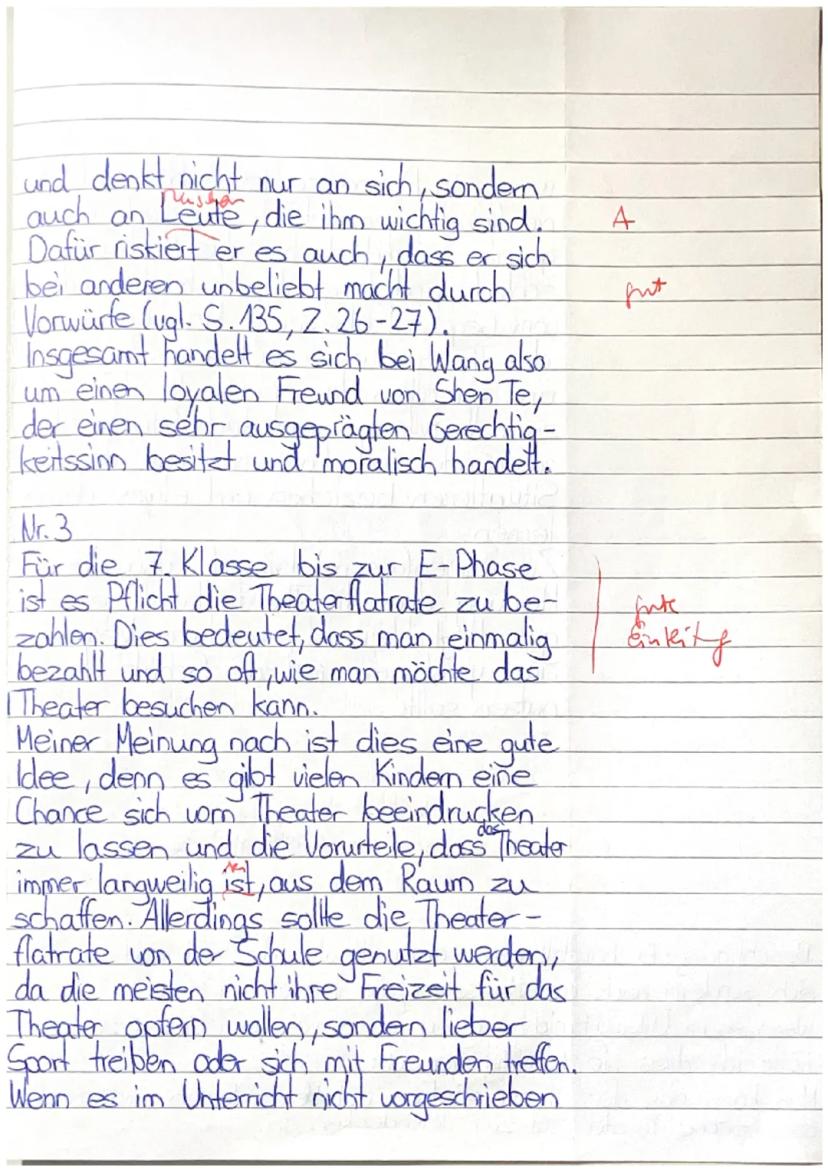 und denkt nicht nur an sich, sondern
Menschen
auch an Leute, die ihm wichtig sind. A
Dafür riskiert er es auch, dass er sich
bei anderen unbeliebt macht durch gut
Vorwürfe (vgl. S. 135, Z. 26-27).
Insgesamt handelt es sich bei Wang also
um einen loyalen Freund von Shen Te,
der einen sehr ausgeprägten Gerechtig-
keitssinn besitzt und moralisch handelt.
Nr. 3
Für die 7. Klasse bis zur E-Phase
ist es Pflicht die Theaterflatrate zu be- gute
zahlen. Dies bedeutet, dass man einmalig Einleitung
bezahlt und so oft, wie man möchte das
Theater besuchen kann.
Meiner Meinung nach ist dies eine gute
Idee, denn es gibt vielen Kindern eine
Chance sich vom Theater beeindrucken
zu lassen und die Vorurteile, dass das Theater
immer langweilig ist, aus dem Raum zu
schaffen. Allerdings sollte die Theater-
flatrate von der Schule genutzt werden,
da die meisten nicht ihre Freizeit für das
Theater opfern wollen, sondern lieber
Sport treiben oder sich mit Freunden treffen.
Wenn es im Unterricht nicht vorgeschrieben